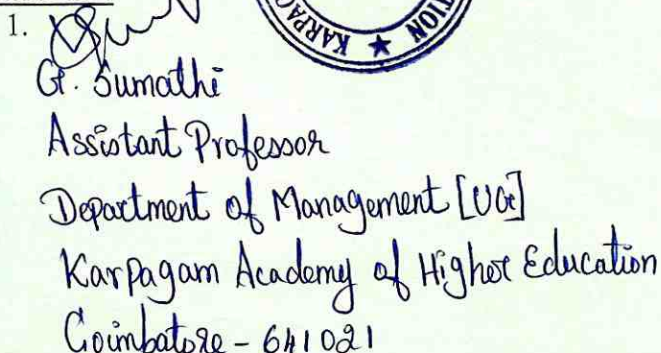 1.
KARPAG
TION
G. Sumathi
Assistant Professor
Department of Management [UG]
Karpagam Academy of Higher Education
Coimbatore - 641021